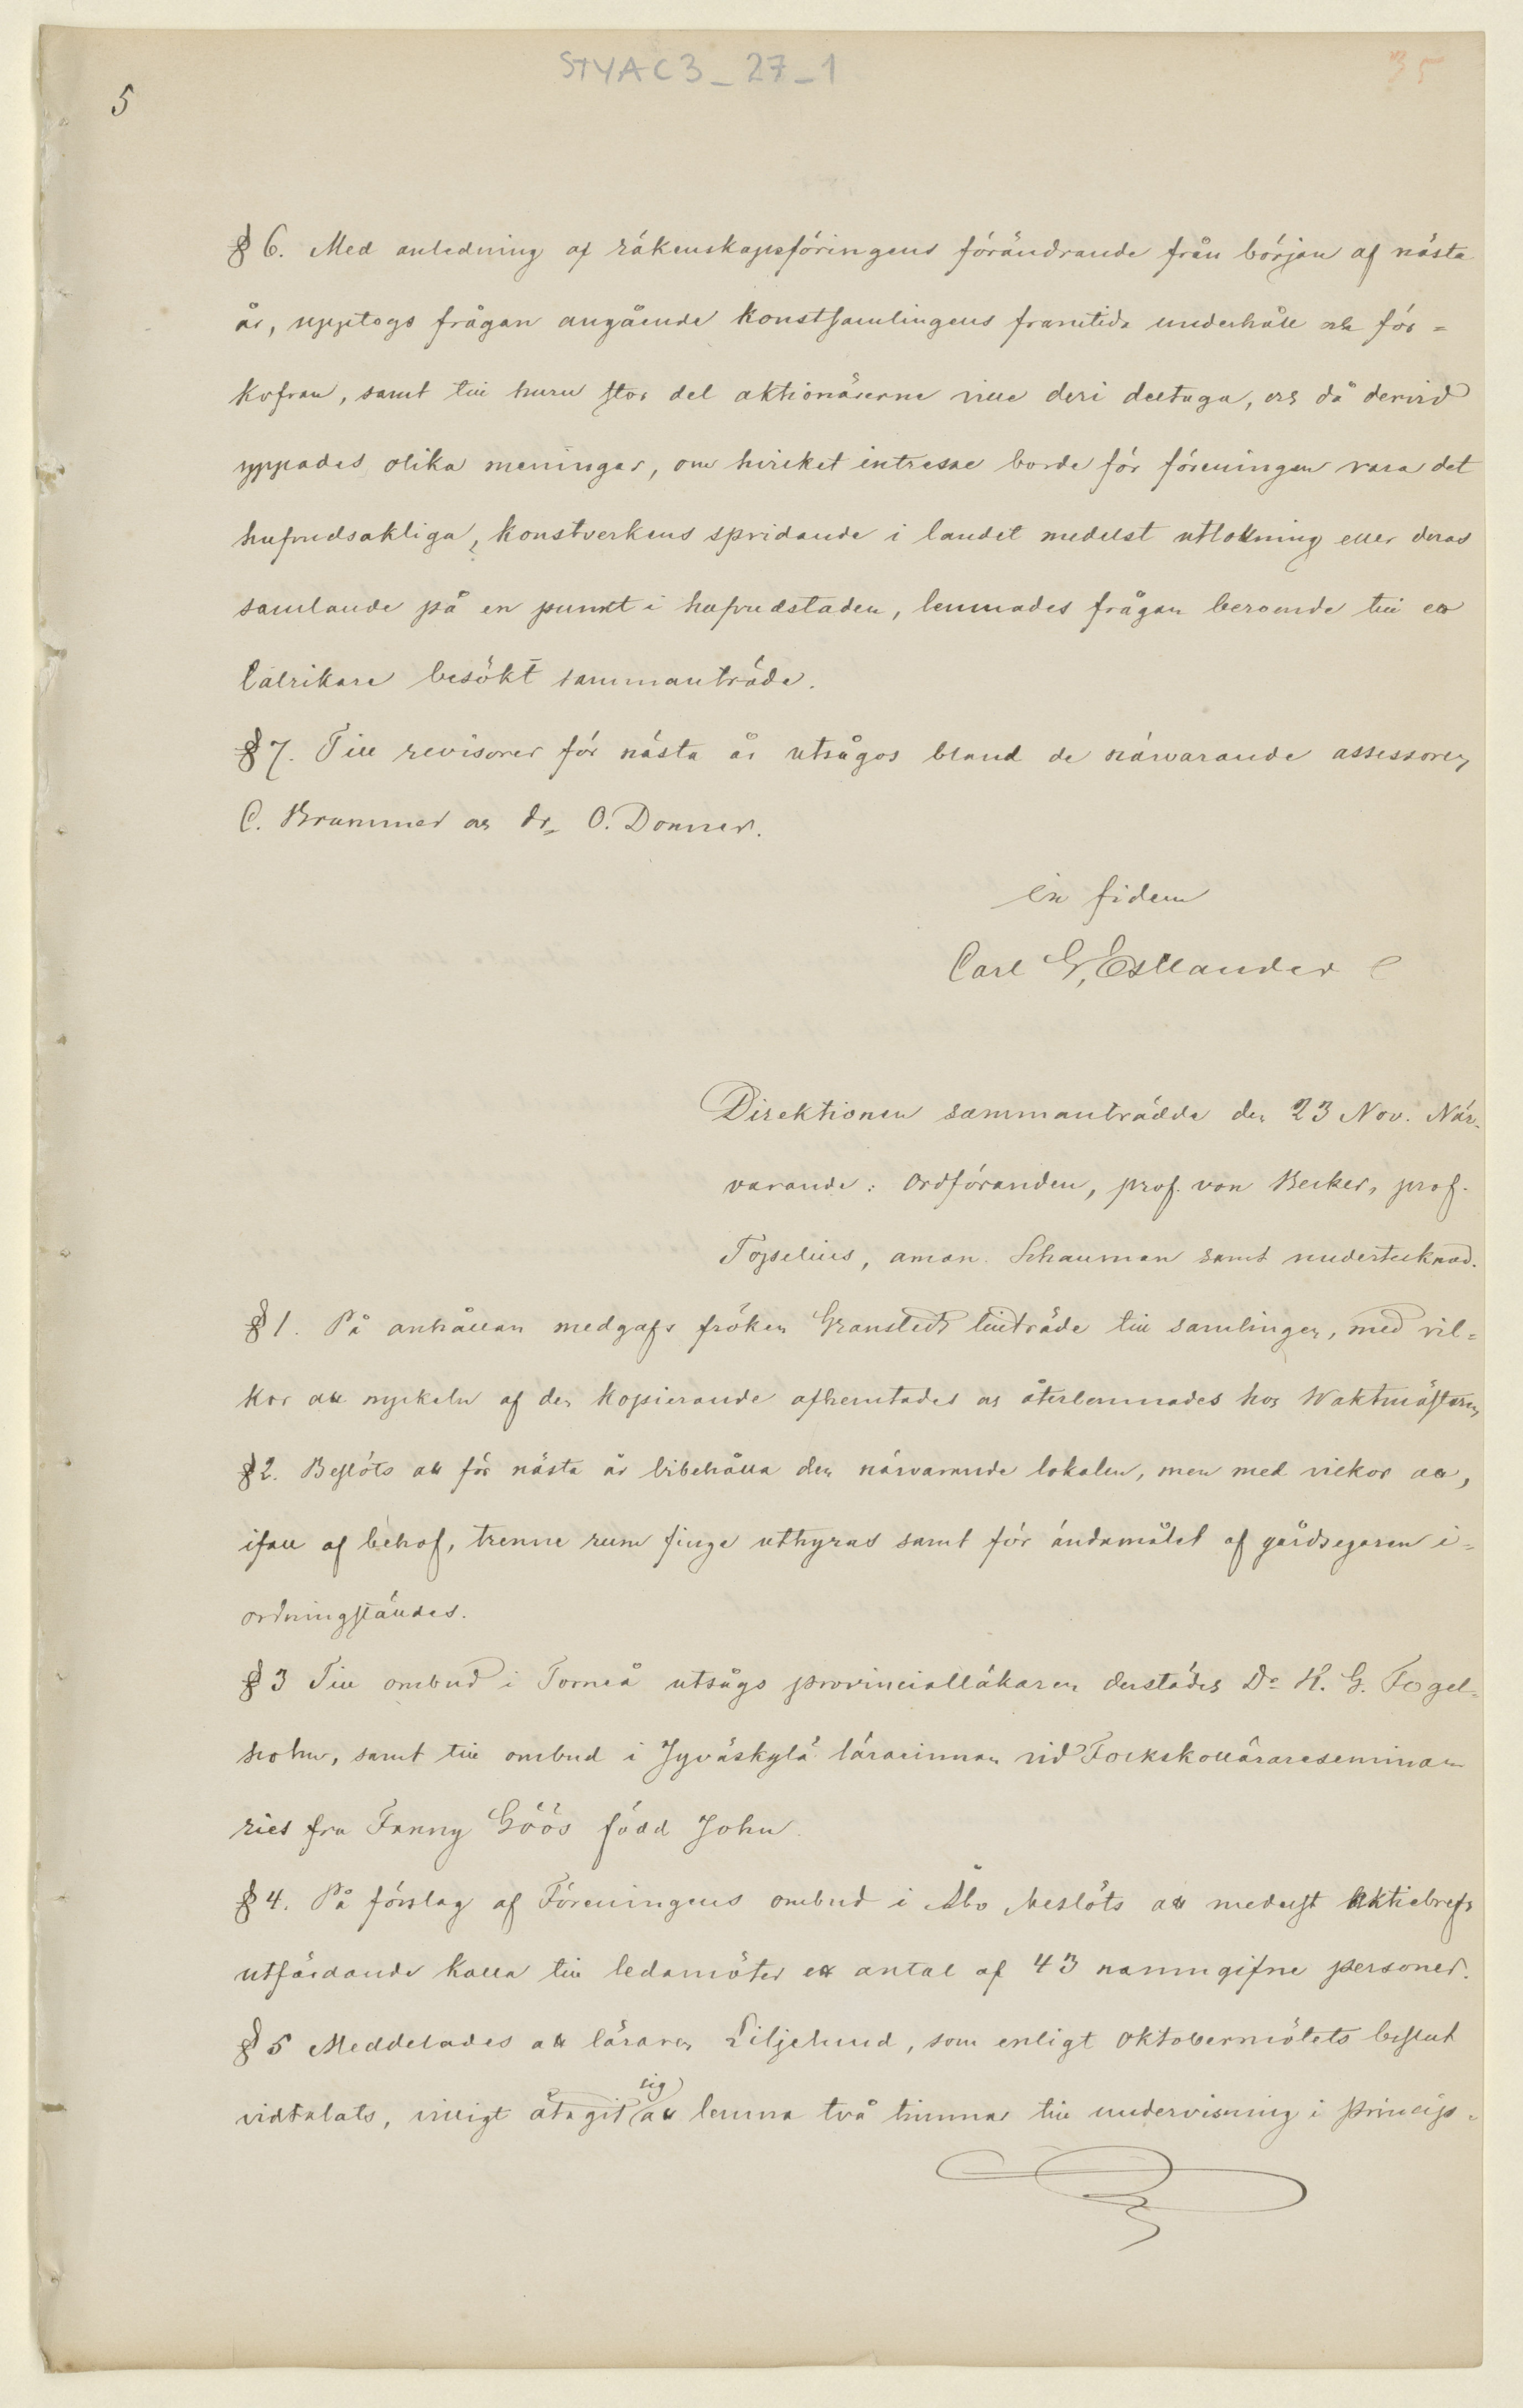 STYAC3_27_1
35
5
§ 6. Med anledning af räkenskapsföringens förändrande från början af nästa
år, upptogs frågan angående konstsamlingens framtida underhåll och för-
kofran, samt till huru stor del aktionärerne ville deri deltaga, och då dervid
yppades olika meningar, om hvilket intresse borde för föreningen vara det
hufvudsakliga, konstverkens spridande i landet medelst utlottning eller deras
samlande på en punkt i hufvudstaden, lemnades frågan beroende till ett
talrikare besökt sammanträde.
§ 7. Till revisorer för nästa år utsågos bland de närvarande assessoren
C. Brummer och dr O. Donner.
in fidem
Carl G. Estlander
Direktionen sammanträdde den 23 Nov. När-
varande: Ordföranden, prof. von Becker, prof.
Topelius, aman. Schauman samt undertecknad.
§ 1. På anhållan medgafs fröken Granstedt tillträde till samlingen, med vil-
kor att nyckeln af den kopierande afhemtades och återlemnades hos Waktmästaren
§ 2. Beslöts att för nästa år bibehålla den närvarande lokalen, men med vilkor att,
ifall af behof, trenne rum finge uthyras samt för ändamålet af gårdsegaren i-
ordningställdes.
§ 3 Till ombud i Torneå utsågs provincialläkaren derstädes Dr H. G. Fogel-
holm, samt till ombud i Jyväskylä lärarinnan vid Folkskollärareseminar-
riet fru Fanny Göös född John.
§ 4. På förslag af Föreningens ombud i Åbo beslöts att medelst Aktiebrefs
utfärdande kalla till ledamöter ett antal af 43 namngifne personer.
§ 5 Meddelades att läraren Liljelund, som enligt Oktobermötets beslut
vidtalats, villigt åtagit sig att lemna två timmar till undervisning i princip-